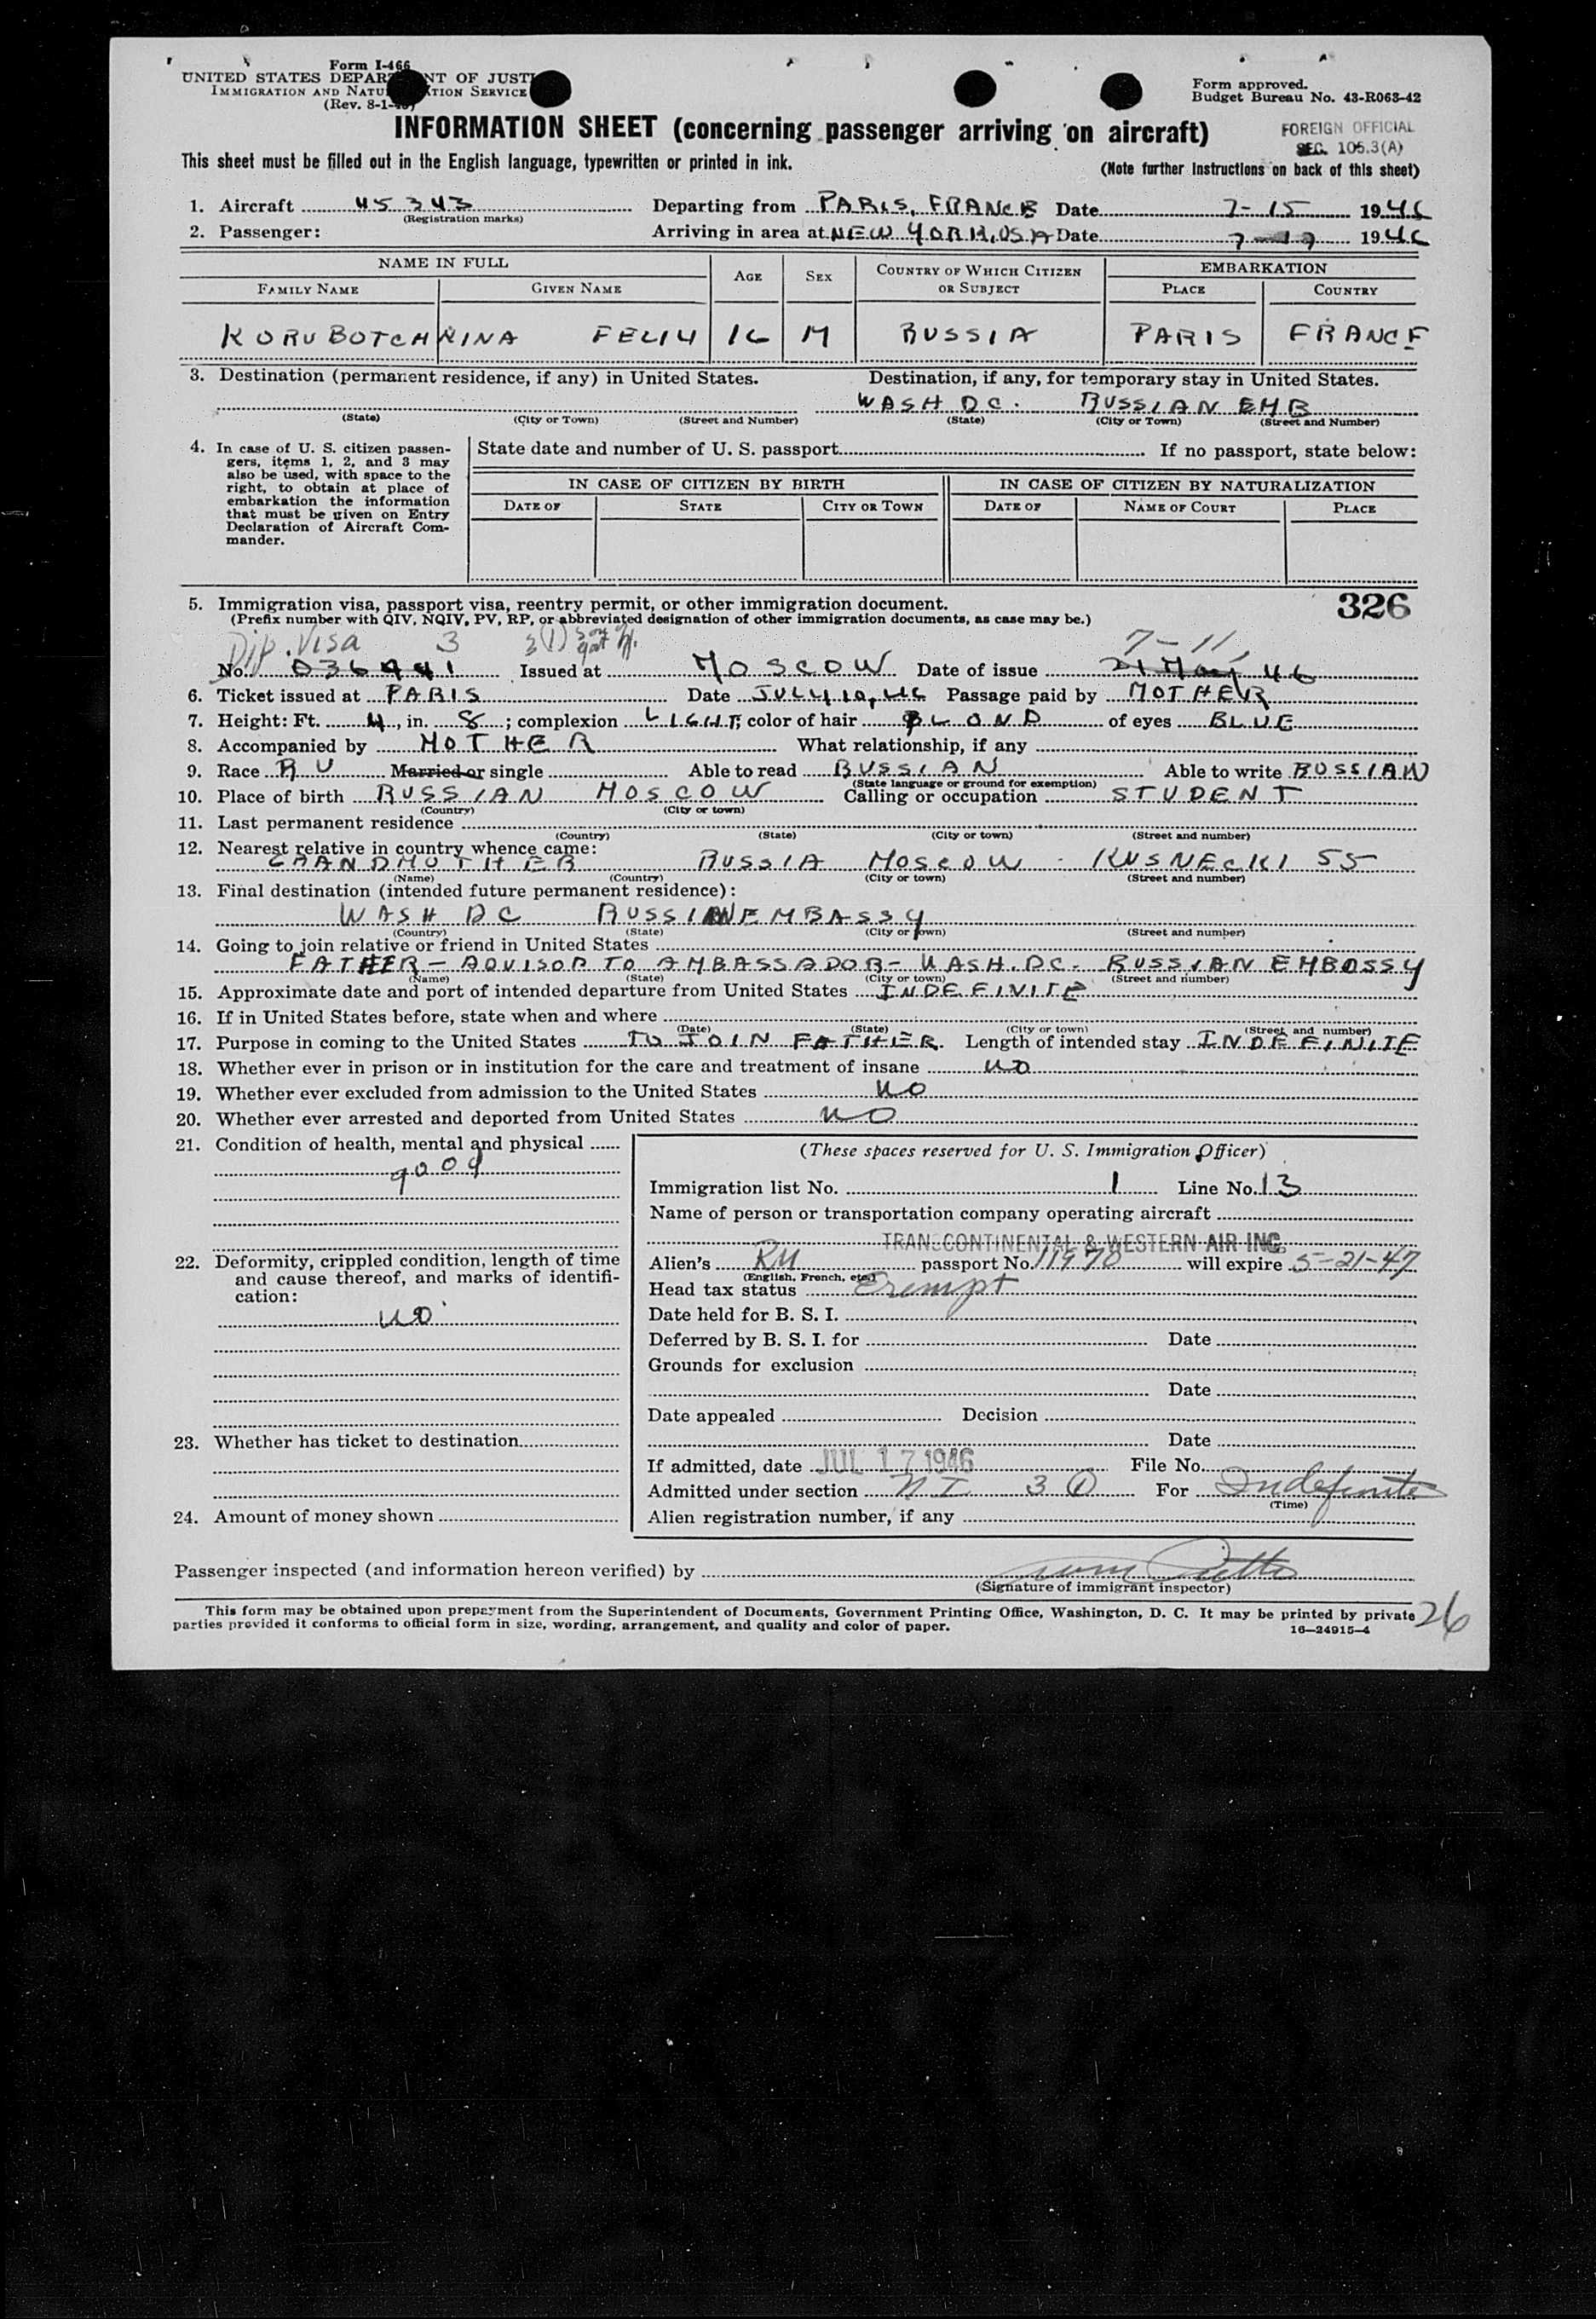 Form I-466
UNITED STATES DEPAR NT OF JUSTI
IMMIGRATION AND NATU TION SERVICE
(Rev. 8-1-
Form approved.
Budget Bureau No. 43-R063-42
INFORMATION SHEET (concerning passenger arriving on aircraft)
FOREIGN OFFICIAL
SEC. 105.3(A)
This sheet must be filled out in the English language, typewritten or printed in ink.
(Note further instructions on back of this sheet)
1. Aircraft 45343 Departing from PARIS, FRANCE Date 7-15 1946
(Registration marks)
2. Passenger: Arriving in area at NEW YORK, USA Date 7-17 1946
NAME IN FULL AGE SEX COUNTRY OF WHICH CITIZEN OR SUBJECT EMBARKATION
FAMILY NAME GIVEN NAME PLACE COUNTRY
KORUBOTCHKINA FELIY 16 M RUSSIA PARIS FRANCE
3. Destination (permanent residence, if any) in United States. Destination, if any, for temporary stay in United States.
WASH DC. RUSSIAN EMB
(State) (City or Town) (Street and Number) (State) (City or Town) (Street and Number)
4. In case of U. S. citizen passengers, items 1, 2, and 3 may also be used, with space to the right, to obtain at place of embarkation the information that must be given on Entry Declaration of Aircraft Commander.
State date and number of U. S. passport If no passport, state below:
IN CASE OF CITIZEN BY BIRTH IN CASE OF CITIZEN BY NATURALIZATION
DATE OF STATE CITY OR TOWN DATE OF NAME OF COURT PLACE
5. Immigration visa, passport visa, reentry permit, or other immigration document. 326
(Prefix number with QIV, NQIV, PV, RP, or abbreviated designation of other immigration documents, as case may be.)
Dip. Visa 3 3(1) son of 7-11,
No. 036941 Issued at MOSCOW Date of issue 21 May 46
6. Ticket issued at PARIS Date JULY 10, 46 Passage paid by MOTHER
7. Height: Ft. 4, in. 8; complexion LIGHT; color of hair BLOND of eyes BLUE
8. Accompanied by MOTHER What relationship, if any
9. Race RU Married or single Able to read RUSSIAN Able to write RUSSIAN
(State language or ground for exemption)
10. Place of birth RUSSIAN MOSCOW Calling or occupation STUDENT
(Country) (City or town)
11. Last permanent residence
(Country) (State) (City or town) (Street and number)
12. Nearest relative in country whence came:
GRANDMOTHER RUSSIA MOSCOW KUSNECKI 55
(Name) (Country) (City or town) (Street and number)
13. Final destination (intended future permanent residence):
WASH DC RUSSIAN EMBASSY
(Country) (State) (City or town) (Street and number)
14. Going to join relative or friend in United States
FATHER - ADVISOR TO AMBASSADOR - WASH. DC. RUSSIAN EMBOSSY
(Name) (State) (City or town) (Street and number)
15. Approximate date and port of intended departure from United States INDEFINITE
16. If in United States before, state when and where
(Date) (State) (City or town) (Street and number)
17. Purpose in coming to the United States TO JOIN FATHER. Length of intended stay INDEFINITE
18. Whether ever in prison or in institution for the care and treatment of insane NO
19. Whether ever excluded from admission to the United States NO
20. Whether ever arrested and deported from United States NO
21. Condition of health, mental and physical
good
22. Deformity, crippled condition, length of time and cause thereof, and marks of identification:
NO
23. Whether has ticket to destination
24. Amount of money shown
(These spaces reserved for U. S. Immigration Officer)
Immigration list No. 1 Line No. 13
Name of person or transportation company operating aircraft
TRANSCONTINENTAL & WESTERN AIR INC.
Alien's RU passport No. 11970 will expire 5-21-47
(English, French, etc.)
Head tax status Exempt
Date held for B. S. I.
Deferred by B. S. I. for Date
Grounds for exclusion
Date
Date appealed Decision
Date
If admitted, date JUL 17 1946 File No.
Admitted under section NI 3 (1) For Indefinite
(Time)
Alien registration number, if any
Passenger inspected (and information hereon verified) by
(Signature of immigrant inspector)
This form may be obtained upon prepayment from the Superintendent of Documents, Government Printing Office, Washington, D. C. It may be printed by private
parties provided it conforms to official form in size, wording, arrangement, and quality and color of paper. 16—24915-4
26